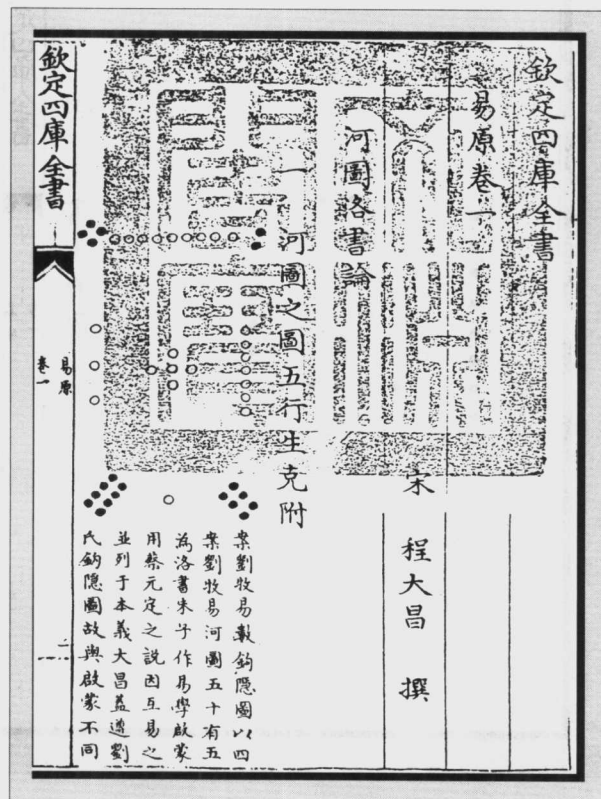 欽定四庫全書
易原卷一
宋 程大昌 撰
河圖洛書論
一 河圖之圖五行生克附
案劉牧易數鈎隱圖以四
案劉牧易河圖五十有五
為洛書朱子作易學啟蒙
用蔡元定之說因互易之
並列于本義大昌蓋遵劉
氏鈎隱圖故與啟蒙不同
欽定四庫全書
易原
卷一